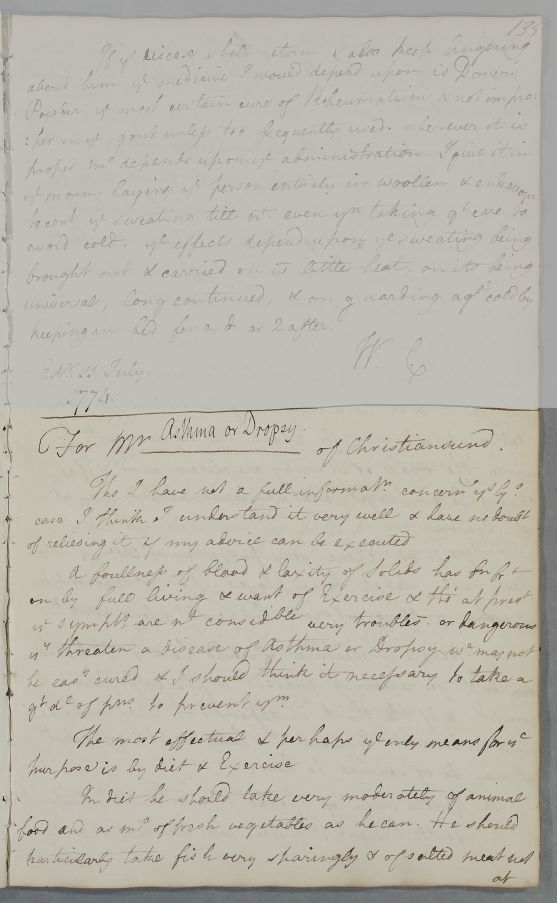 135
If yͤ disease shall return & also keep lingering
about him yͤ medicine I would depend upon is Dovers
Powder yͤ most certain cure of Rheumatism & not impro:
:per in yͤ gout unless too frequently used. wherever it is
proper mͨ depends upon yͤ administration. I give it in
yͤ morn. laying yͤ person entirely in woollen & endeavour
to cont. yͤ sweating till nͭ. even yͫ taking gͭ care to
avoid cold. yͤ effects depend upon yͤ sweating being
brought out & carried on wͭ little heat, on its being
universal, long continued, & on guarding agͭ cold by
keeping in bed for a d. or 2 after.
W. C
Edʳ. 11 July.
1774.
For Mʳ Asthma or Dropsy. of Christiansund.
Tho I have not a full informaᵗⁿ. concernᵍ yˢ Gˢ.
case I think I understand it very well & have no doubt
of relieving it if my advice can be executed
A foullness of blood & laxity of Solids has been brᵗ
on by full living & want of Exercise & tho' at presᵗ
yͤ symptˢ. are nͭ considble very troubles. or dangerous
yʸ threaten a disease of Asthma or Dropsy wͨ may not
be easʸ cured & I should think it necessary to take a
gͭ dͨ of pns. to prevent yͫ.
The most effectual & perhaps yͤ only means for yˢ
purpose is by diet & Exercise
In diet he should take very moderately of animal
food and as mͨ of fresh vegetables as he can. He should
particularly take fish very sparingly & of salted meat not
at